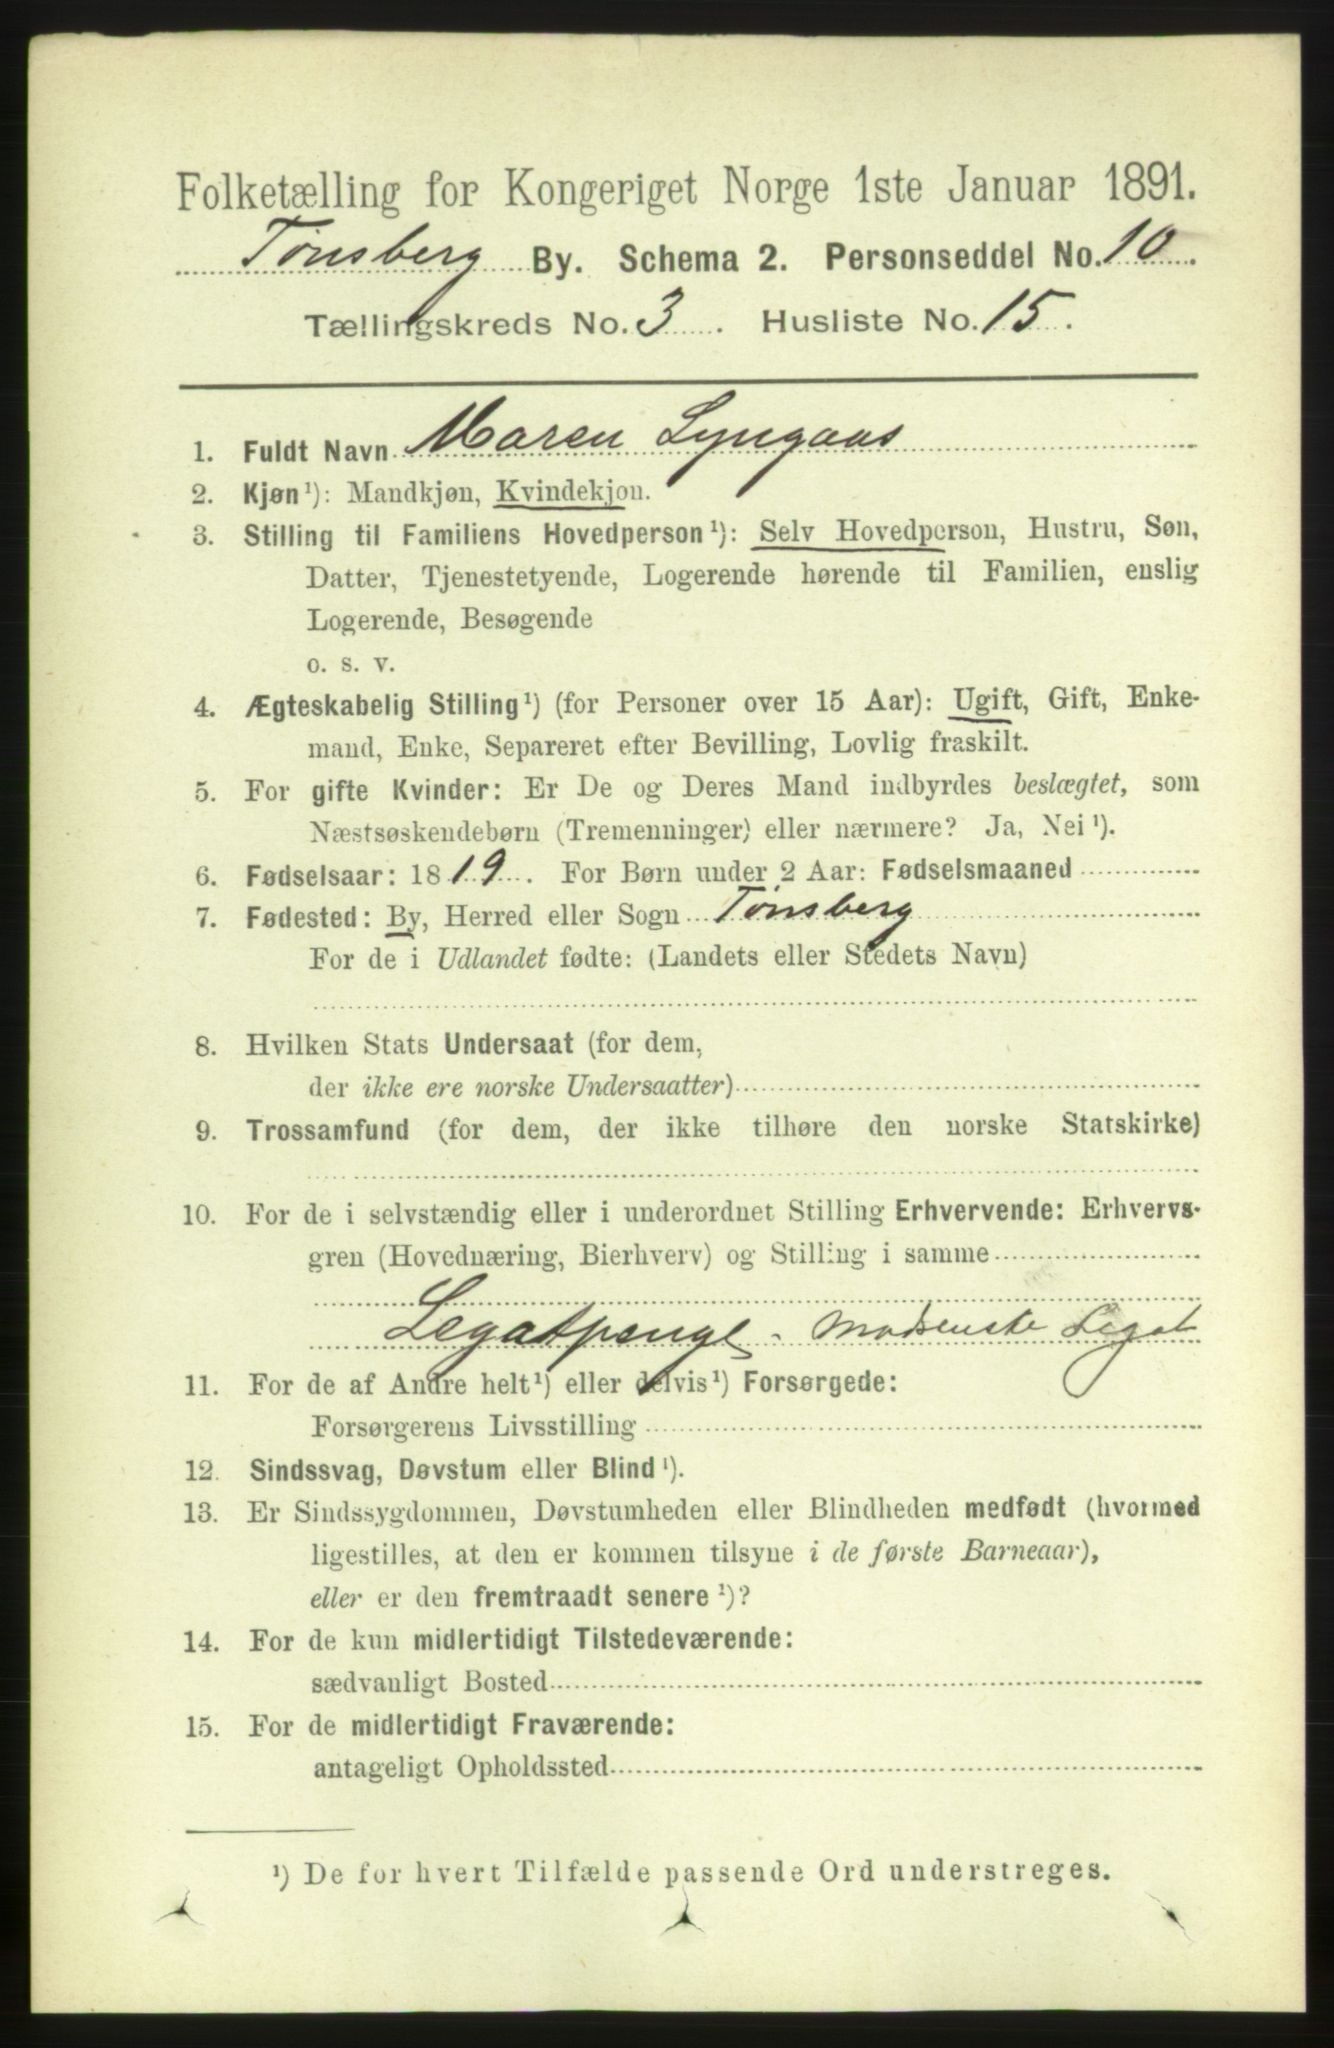 Folketælling for Kongeriget Norge 1ste Januar 1891.
Tönsberg By. Schema 2. Personseddel No. 10.
Tællingskreds No. 3. Husliste No. 15.
1. Fuldt Navn Maren Lyngaas
2. Kjøn ¹): Mandkjøn, Kvindekjøn.
3. Stilling til Familiens Hovedperson ¹): Selv Hovedperson, Hustru, Søn,
Datter, Tjenestetyende, Logerende hørende til Familien, enslig
Logerende, Besøgende
o. s. v.
4. Ægteskabelig Stilling ¹) (for Personer over 15 Aar): Ugift, Gift, Enke-
mand, Enke, Separeret efter Bevilling, Lovlig fraskilt.
5. For gifte Kvinder: Er De og Deres Mand indbyrdes beslægtet, som
Næstsøskendebørn (Tremenninger) eller nærmere? Ja, Nei ¹).
6. Fødselsaar: 1819. For Børn under 2 Aar: Fødselsmaaned
7. Fødested: By, Herred eller Sogn Tönsberg
For de i Udlandet fødte: (Landets eller Stedets Navn)
8. Hvilken Stats Undersaat (for dem,
der ikke ere norske Undersaatter)
9. Trossamfund (for dem, der ikke tilhøre den norske Statskirke)
10. For de i selvstændig eller i underordnet Stilling Erhvervende: Erhvervs-
gren (Hovednæring, Bierhverv) og Stilling i samme
Legatpenge - Madsenske Legat
11. For de af Andre helt ¹) eller delvis ¹) Forsørgede:
Forsørgerens Livsstilling
12. Sindssvag, Døvstum eller Blind ¹).
13. Er Sindssygdommen, Døvstumheden eller Blindheden medfødt (hvormed
ligestilles, at den er kommen tilsyne i de første Barneaar),
eller er den fremtraadt senere ¹)?
14. For de kun midlertidigt Tilstedeværende:
sædvanligt Bosted
15. For de midlertidigt Fraværende:
antageligt Opholdssted
¹) De for hvert Tilfælde passende Ord understreges.